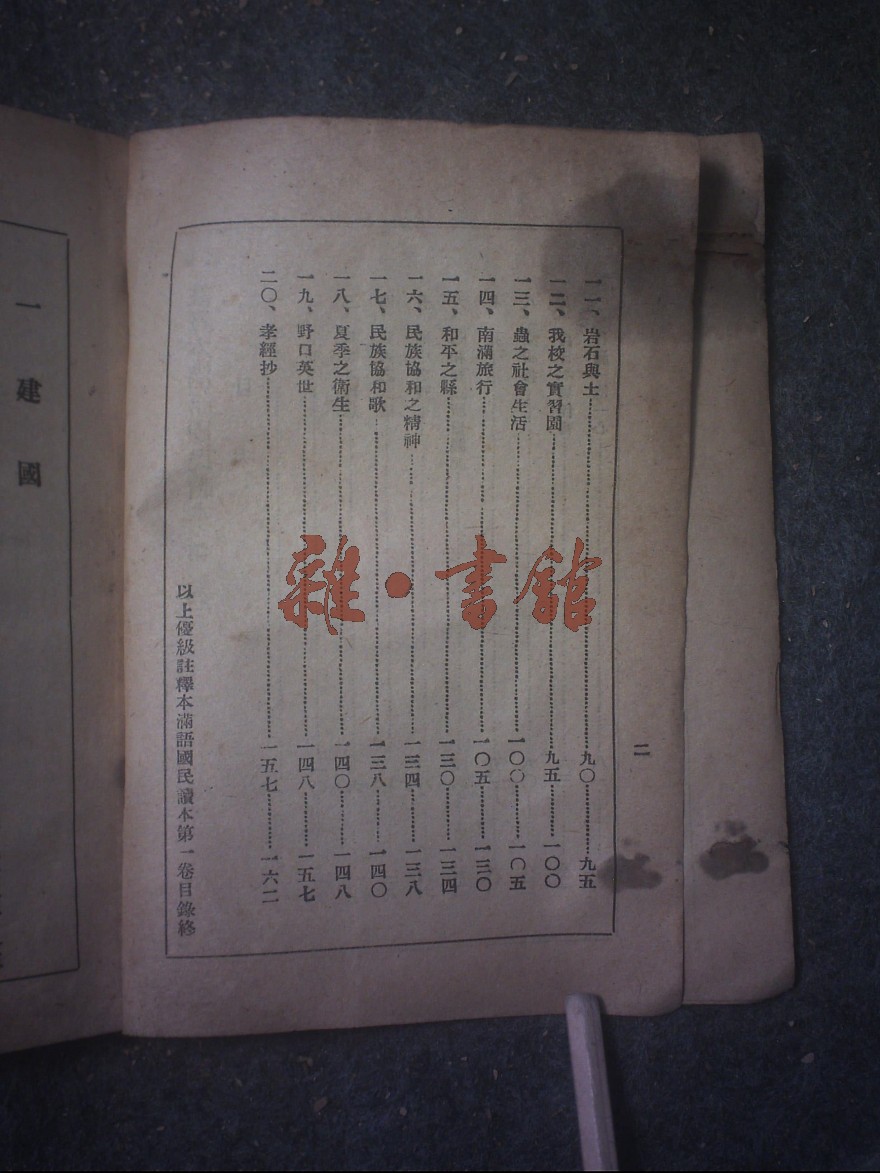 二
一一、岩石與土……九〇……九五
一二、我校之實習園……九五……一〇〇
一三、蟲之社會生活……一〇〇……一〇五
一四、南滿旅行……一〇五……一三〇
一五、和平之縣……一三〇……一三四
一六、民族協和之精神……一三四……一三八
一七、民族協和歌……一三八……一四〇
一八、夏季之衛生……一四〇……一四八
一九、野口英世……一四八……一五七
二〇、孝經抄……一五七……一六二
以上優級註釋本滿語國民讀本第一卷目錄終
一 建國
雜·書館